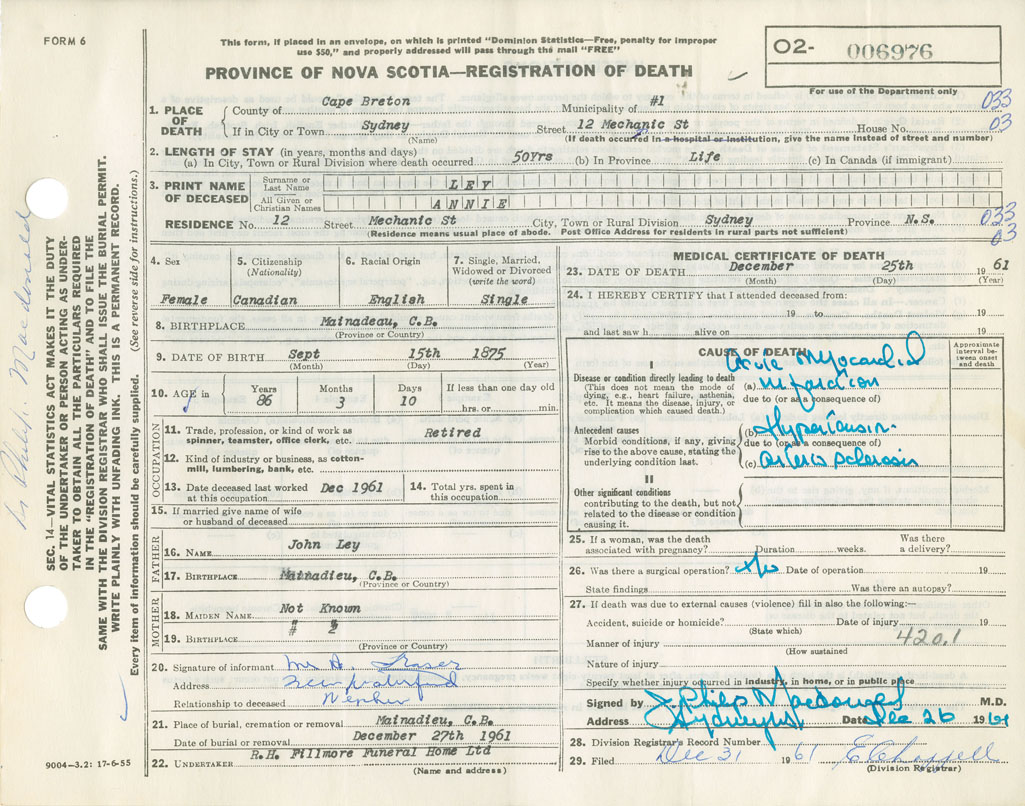 FORM 6
This form, if placed in an envelope, on which is printed "Dominion Statistics—Free, penalty for improper
use $50," and properly addressed will pass through the mail "FREE"
PROVINCE OF NOVA SCOTIA—REGISTRATION OF DEATH
O2- 006976
For use of the Department only
033
03
1. PLACE OF DEATH
County of Cape Breton Municipality of #1
If in City or Town Sydney Street 12 Mechanic St House No.
(Name) (If death occurred in a hospital or institution, give the name instead of street and number)
2. LENGTH OF STAY (in years, months and days)
(a) In City, Town or Rural Division where death occurred 50Yrs (b) In Province Life (c) In Canada (if immigrant)
3. PRINT NAME OF DECEASED
Surname or Last Name LEY
All Given or Christian Names ANNIE
RESIDENCE No. 12 Street Mechanic St City, Town or Rural Division Sydney Province N.S.
(Residence means usual place of abode. Post Office Address for residents in rural parts not sufficient)
033
03
4. Sex
Female
5. Citizenship
(Nationality)
Canadian
6. Racial Origin
English
7. Single, Married,
Widowed or Divorced
(write the word)
Single
8. BIRTHPLACE Mainadeau, C.B.
(Province or Country)
9. DATE OF BIRTH Sept 15th 1875
(Month) (Day) (Year)
10. AGE in
Years Months Days If less than one day old
86 3 10 hrs. or min.
OCCUPATION
11. Trade, profession, or kind of work as
spinner, teamster, office clerk, etc. Retired
12. Kind of industry or business, as cotton-
mill, lumbering, bank, etc.
13. Date deceased last worked
at this occupation Dec 1961
14. Total yrs. spent in
this occupation
15. If married give name of wife
or husband of deceased
FATHER
16. NAME John Ley
17. BIRTHPLACE Mainadieu, C.B.
(Province or Country)
MOTHER
18. MAIDEN NAME Not Known
19. BIRTHPLACE # 2
(Province or Country)
20. Signature of informant Mr A. Fraser
Address New Waterford
Relationship to deceased Nephew
21. Place of burial, cremation or removal Mainadieu, C.B.
Date of burial or removal December 27th 1961
22. UNDERTAKER R.H. Fillmore Funeral Home Ltd
(Name and address)
9004-3.2: 17-6-55
MEDICAL CERTIFICATE OF DEATH
23. DATE OF DEATH December 25th 1961
(Month) (Day) (Year)
24. I HEREBY CERTIFY that I attended deceased from:
19 to 19
and last saw h alive on 19
CAUSE OF DEATH
Approximate interval between onset and death
I
Disease or condition directly leading to death
(This does not mean the mode of
dying, e.g., heart failure, asthenia,
etc. It means the disease, injury, or
complication which caused death.)
(a) Acute Myocardial
infarction
due to (or as a consequence of)
Antecedent causes
Morbid conditions, if any, giving
rise to the above cause, stating the
underlying condition last.
(b) Hypertension
due to (or as a consequence of)
(c) arterio sclerosis
II
Other significant conditions
contributing to the death, but not
related to the disease or condition
causing it.
25. If a woman, was the death
associated with pregnancy? Duration weeks. Was there
a delivery?
26. Was there a surgical operation? No Date of operation 19
State findings Was there an autopsy?
27. If death was due to external causes (violence) fill in also the following:—
Accident, suicide or homicide? Date of injury 19
(State which)
Manner of injury 420.1
(How sustained
Nature of injury
Specify whether injury occurred in industry, in home, or in public place
Signed by J. Philip Macdonald M.D.
Address Sydney NS Date Dec 26 1961
28. Division Registrar's Record Number
29. Filed Dec 31 1961 E Chappell
(Division Registrar)
SEC. 14—VITAL STATISTICS ACT MAKES IT THE DUTY
OF THE UNDERTAKER OR PERSON ACTING AS UNDER-
TAKER TO OBTAIN ALL THE PARTICULARS REQUIRED
IN THE "REGISTRATION OF DEATH" AND TO FILE THE
SAME WITH THE DIVISION REGISTRAR WHO SHALL ISSUE THE BURIAL PERMIT.
WRITE PLAINLY WITH UNFADING INK. THIS IS A PERMANENT RECORD.
Every item of information should be carefully supplied. (See reverse side for instructions.)
Dr Philip Macdonald